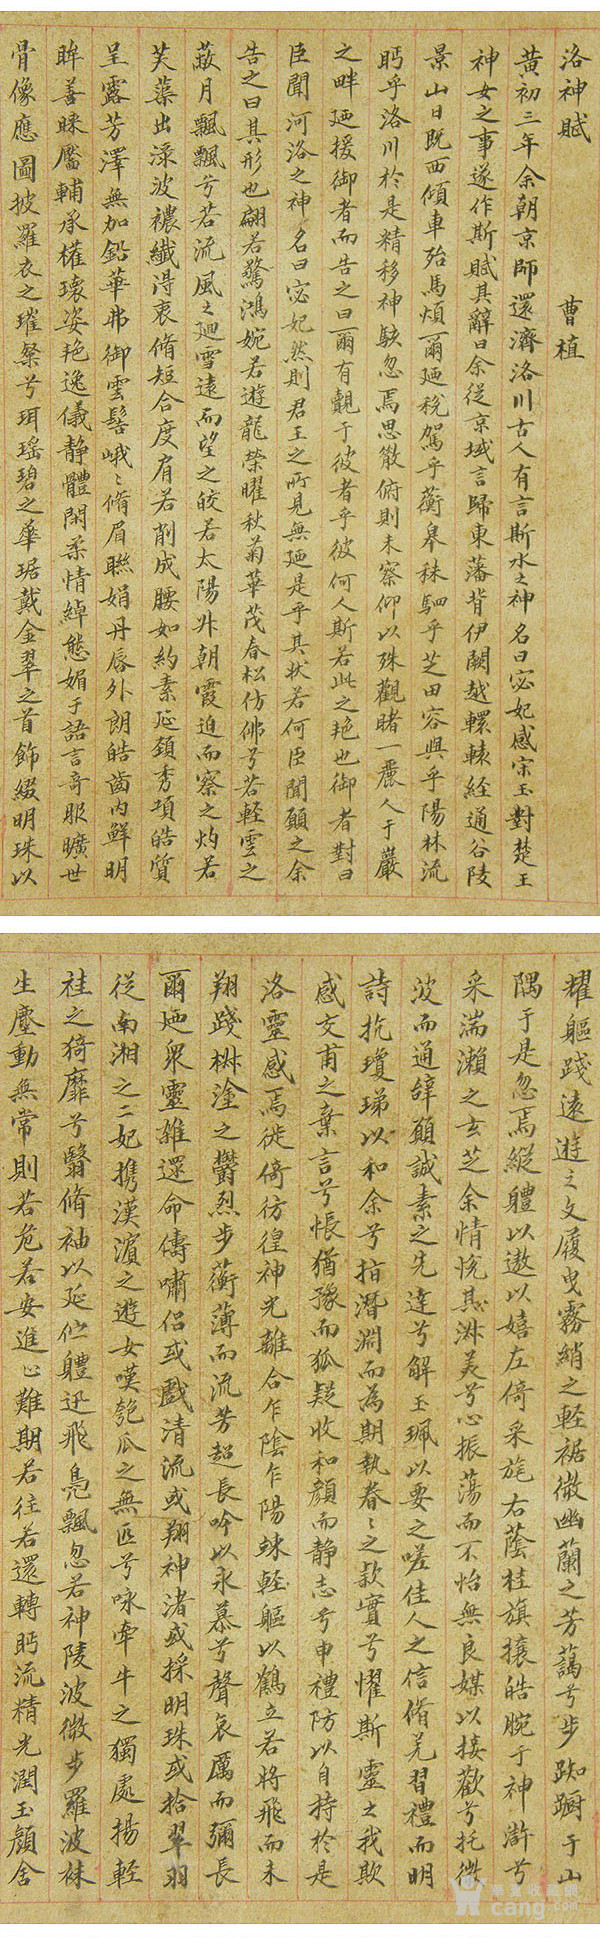 洛神賦 曹植
黄初三年余朝京師還濟洛川古人有言斯水之神名曰宓妃感宋玉對楚王
神女之事遂作斯賦其辭曰余從京域言歸東藩背伊闕越轘轅経通谷陵
景山日既西傾車殆馬煩爾廼税駕乎蘅皋秣駟乎芝田容與乎陽林流
眄乎洛川於是精移神駭忽焉思散俯則未察仰以殊觀睹一麗人于巖
之畔廼援御者而告之曰爾有覿于彼者乎彼何人斯若此之艳也御者對曰
臣聞河洛之神名曰宓妃然則君王之所見無廼是乎其狀若何臣聞願之余
告之曰其形也翩若驚鴻婉若遊龍榮曜秋菊華茂春松仿佛兮若軽雲之
蔽月飄飄兮若流風之廻雪遠而望之皎若太陽升朝霞迫而察之灼若
芙蕖出淥波襛纖得衷脩短合度肩若削成腰如約素延頸秀項皓質
呈露芳澤無加鉛華弗御雲髻峨峨脩眉聯娟丹唇外朗皓齒内鮮明
眸善睞靨輔承權瓌姿艳逸儀静體閑柔情綽態媚于語言奇服曠世
骨像應圖披羅衣之璀粲兮珥瑶碧之華琚戴金翠之首飾綴明珠以
耀軀踐遠遊之文履曳霧綃之軽裾微幽蘭之芳藹兮步踟蹰于山
隅于是忽焉縱軆以遨以嬉左倚采旄右蔭桂旗攘皓腕于神滸兮
采湍瀨之玄芝余情悦其淑美兮心振蕩而不怡無良媒以接歡兮托微
波而通辭願誠素之先達兮解玉珮以要之嗟佳人之信脩羌習禮而明
詩抗瓊珶以和余兮指潛淵而為期執眷眷之款實兮懼斯靈之我欺
感交甫之棄言兮悵猶豫而狐疑收和顔而静志兮申禮防以自持於是
洛靈感焉徙倚彷徨神光離合乍陰乍陽竦軽軀以鶴立若將飛而未
翔踐椒塗之鬱烈步蘅薄而流芳超長吟以永慕兮聲哀厲而彌長
爾廼衆靈雜遝命儔嘯侣或戲清流或翔神渚或採明珠或拾翠羽
從南湘之二妃攜漢濱之遊女嘆匏瓜之無匹兮咏牽牛之獨處揚軽
袿之猗靡兮翳脩袖以延佇軆迅飛鳧飄忽若神陵波微步羅波袜
生塵動無常則若危若安進止難期若往若還轉眄流精光潤玉顔含
cang.com